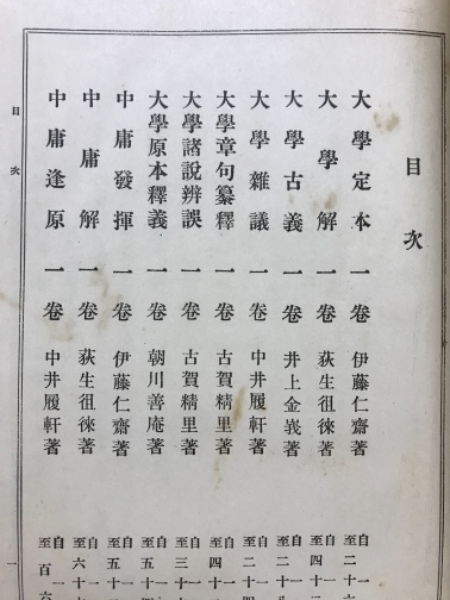 目次
大學定本 一卷 伊藤仁齋著 自一至二十
大學解 一卷 荻生徂徠著 自一至四十
大學古義 一卷 井上金峩著 自一至二十
大學雜議 一卷 中井履軒著 自一至二十
大學章句纂釋 一卷 古賀精里著 自一至四十
大學諸說辨誤 一卷 古賀精里著 自一至三十
大學原本釋義 一卷 朝川善庵著 自一至五十
中庸發揮 一卷 伊藤仁齋著 自一至五十
中庸解 一卷 荻生徂徠著 自一至六十
中庸逢原 一卷 中井履軒著 自一至百
目次
一